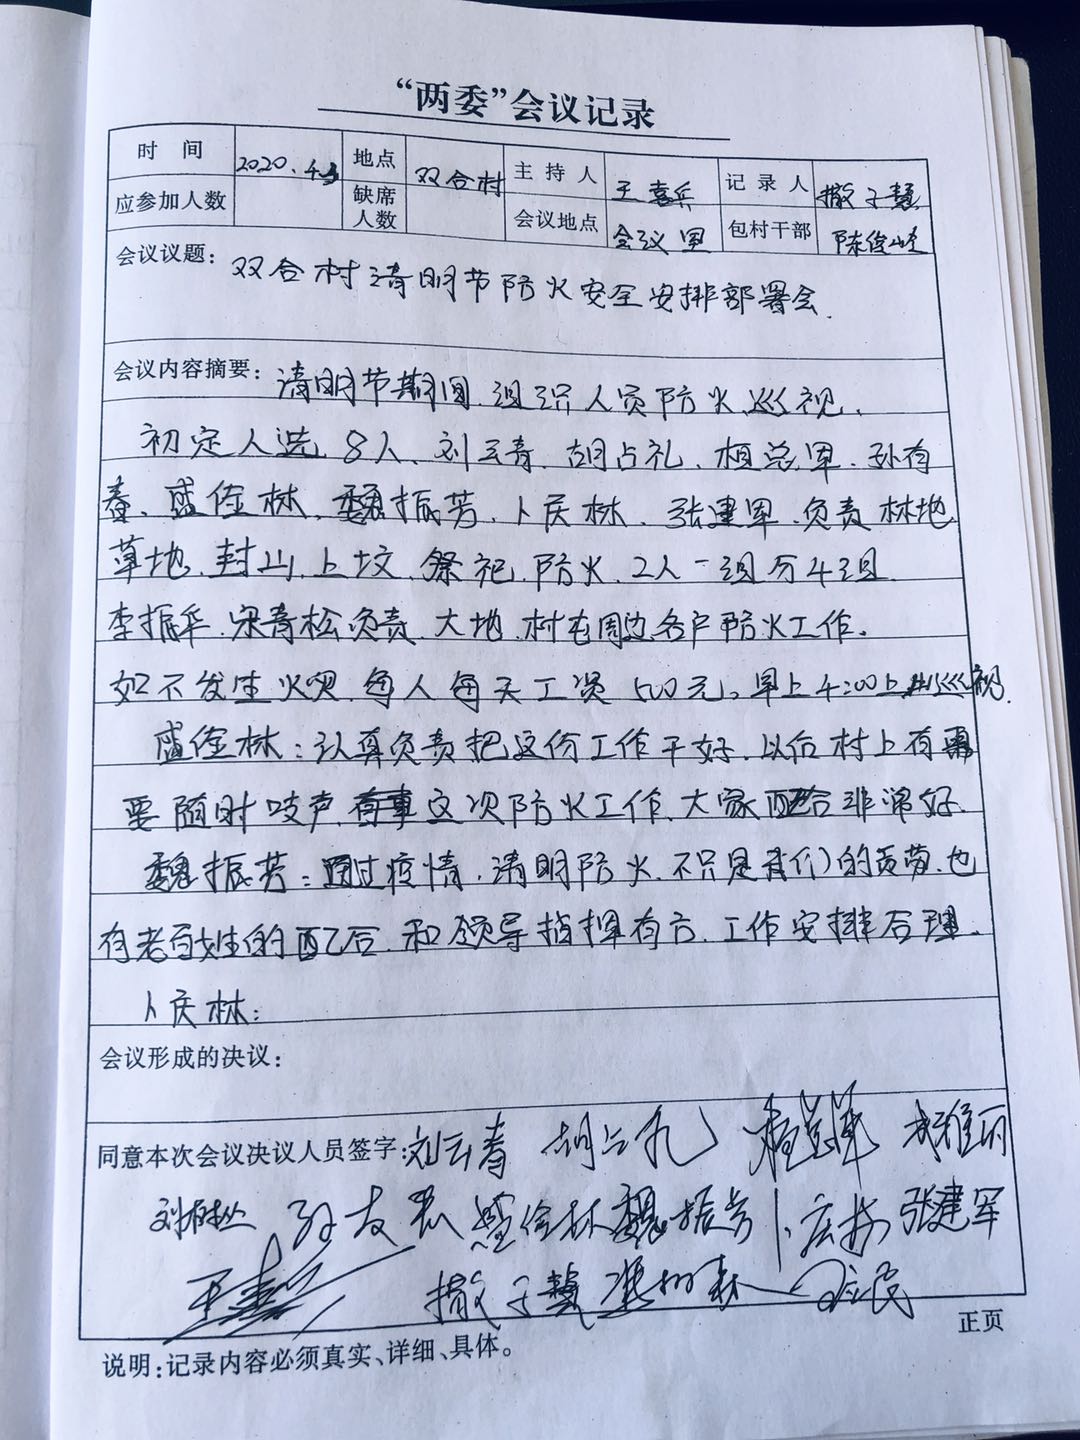 “两委”会议记录
时 间 2020.4.3 地点 双合村 主 持 人 王喜兵 记 录 人 撒子慧
应参加人数 缺席人数 会议地点 会议室 包村干部 陈俊岐
会议议题: 双合村清明节防火安全安排部署会.
会议内容摘要: 清明节期间.组织人员防火.巡视.
初定人选8人、刘云青.胡占礼.相总军.孙有
春.盛俭林.魏振芳.卜庆林.张建军.负责林地.
草地.封山.上坟.祭祀.防火.2人一组分4组.
李振华.宋青松负责.大地.村屯周边各户防火工作.
如不发生火.每人每天工资500元。早上4:00上山巡视.
盛俭林:认真负责把这份工作干好.以后村上有需
要随时吱声.这次防火工作.大家配合非常好.
魏振芳:通过疫情.清明防火.不只是我们的黄劳.也
有老百姓的配合.和领导指挥有方.工作安排合理.
卜庆林:
会议形成的决议:
同意本次会议决议人员签字:刘云青 胡占礼
盛俭林 魏振芳 卜庆林 张建军
王喜兵 撒子慧
正页
说明:记录内容必须真实、详细、具体。